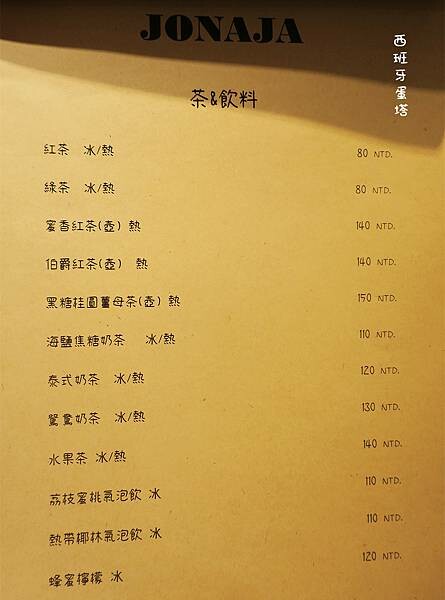 JONAJA
西班牙蛋塔
茶&飲料
紅茶 冰/熱 80 NTD.
綠茶 冰/熱 80 NTD.
蜜香紅茶(壺) 熱 140 NTD.
伯爵紅茶(壺) 熱 140 NTD.
黑糖桂圓薑母茶(壺) 熱 150 NTD.
海鹽焦糖奶茶 冰/熱 110 NTD.
泰式奶茶 冰/熱 120 NTD.
鴛鴦奶茶 冰/熱 130 NTD.
水果茶 冰/熱 140 NTD.
荔枝蜜桃氣泡飲 冰 110 NTD.
熱帶椰林氣泡飲 冰 110 NTD.
蜂蜜檸檬 冰 120 NTD.